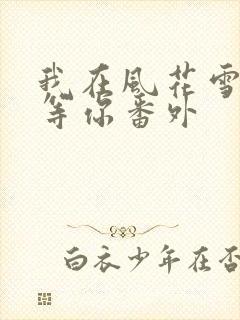 我在風花雪
等你番外
白衣少年在否